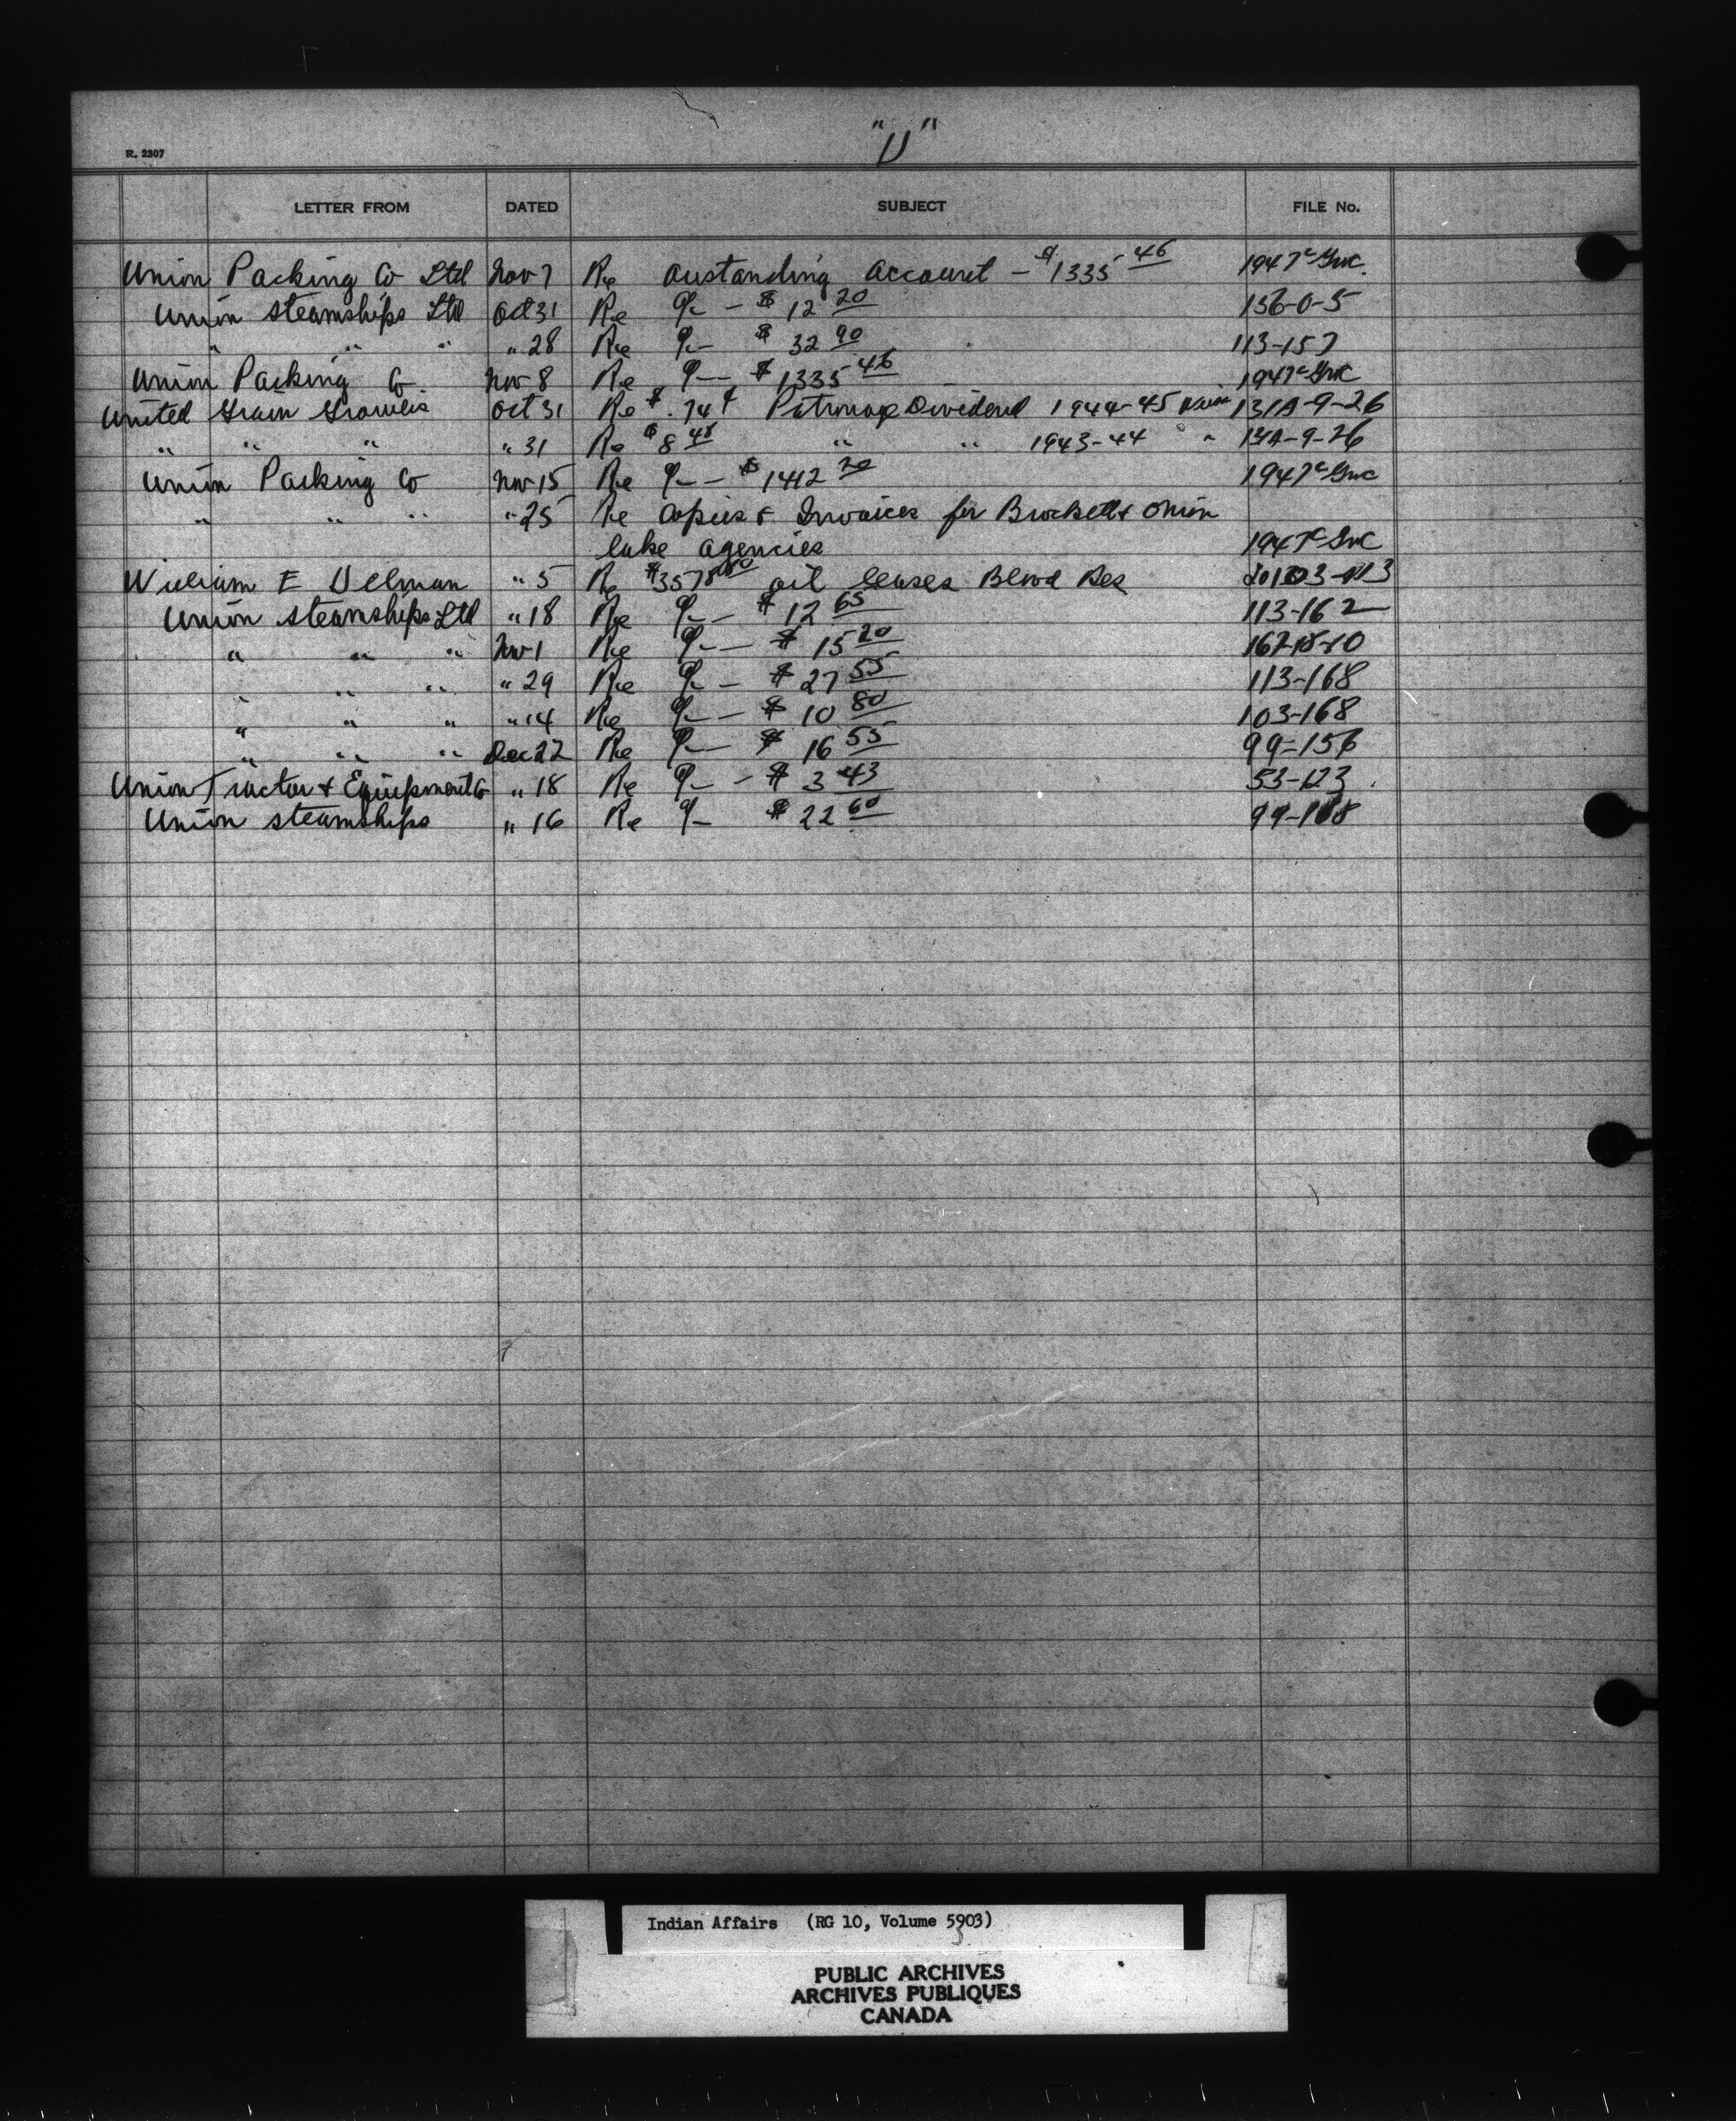 "U"
R. 2307
LETTER FROM DATED SUBJECT FILE No.
Union Packing Co Ltd Nov 7 Re oustanding account - $1335 46 1947
Union Steamships Ltd Oct 31 Re - $12 20 136-0-5
" " " " 28 Re $32 90 113-157
Union Packing Co. Nov 8 Re - $1335 46 1947
United Grain Growers Oct 31 Re $.74¢ Patronage Dividend 1944-45 131A-9-26
" " " " 31 Re $8 48 " " 1943-44 " 131A-9-26
Union Packing Co Nov 15 Re - $1412 20 1947
" " " " 25 Re copies of Invoices for Brocket & Onion
lake agencies 1947
William E Ulman " 5 Re $3578 00 oil leases Blood Res
Union Steamships Ltd " 18 Re - $12 65 113-162
" " " Nov 1 Re - $15 20
" " " " 29 Re - $27 55 113-168
" " " " 14 Re - $10 80 103-168
" " " Dec 22 Re - $16 55 99-156
Union Tractor & Equipment Co " 18 Re - $3 43 53-123
Union steamships " 16 Re $22 60
Indian Affairs (RG 10, Volume 5903)
3
PUBLIC ARCHIVES
ARCHIVES PUBLIQUES
CANADA